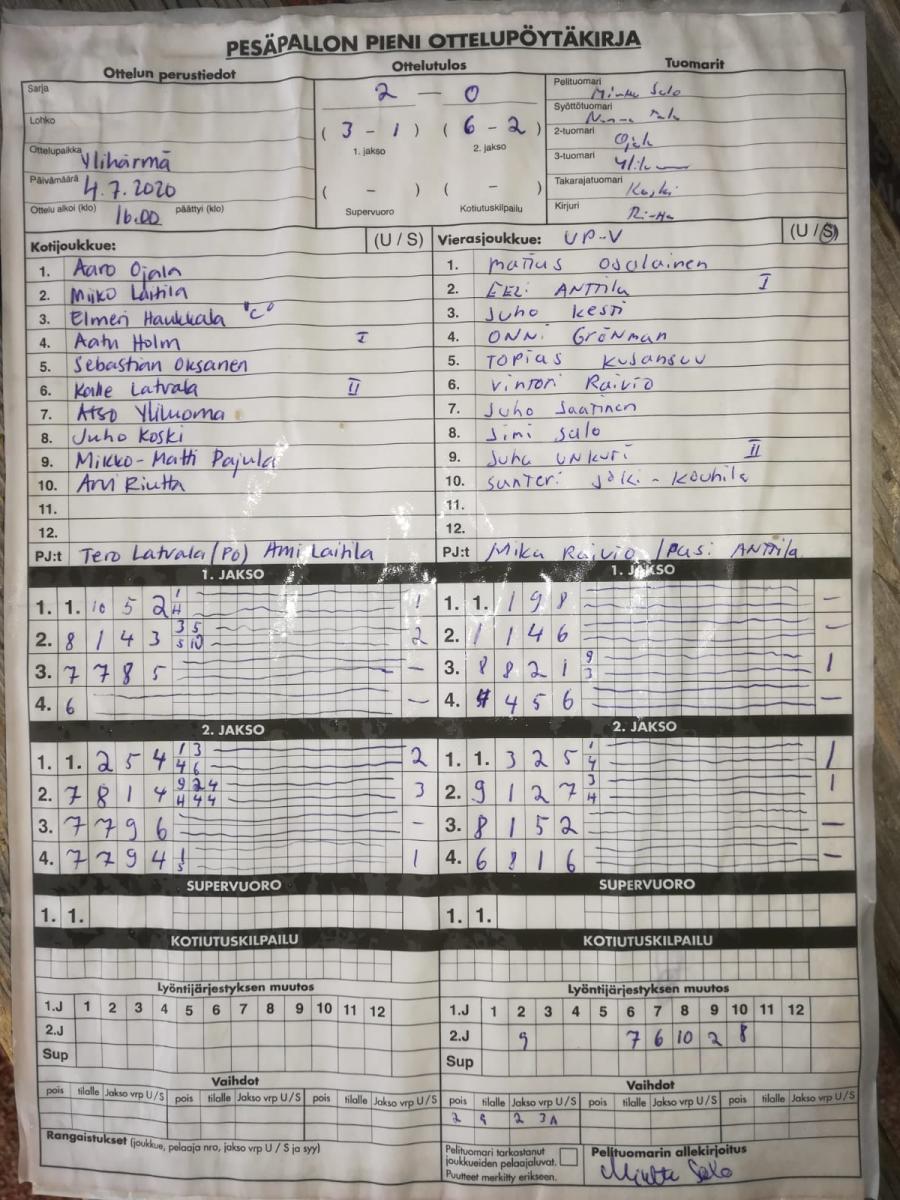 PESÄPALLON PIENI OTTELUPÖYTÄKIRJA
Ottelun perustiedot
Ottelutulos
Tuomarit
Sarja
2 — 0
Pelituomari Salo
Lohko
( 3 - 1 ) ( 6 - 2 )
Syöttötuomari
1. jakso 2. jakso
2-tuomari
Ottelupaikka Ylihärmä
3-tuomari
Päivämäärä 4.7.2020
( - ) ( - )
Takarajatuomari Koski
Ottelu alkoi (klo) 16.00 päättyi (klo)
Supervuoro Kotiutuskilpailu
Kirjuri
Kotijoukkue: (U / S)
Vierasjoukkue: UP-V (U / S)
1. Aaro Ojala
2. Miiko Laitila
3. Elmeri Haukkala "C"
4. Aatu Holm I
5. Sebastian Oksanen
6. Kalle Latvala II
7. Atso Yliluoma
8. Juho Koski
9. Mikko-Matti Pajula
10. Arvi Riutta
11.
12.
PJ:t Tero Latvala (PO) Ami Laitila
1. Matias Osalainen
2. EELI ANTTILA I
3. Juho Kesti
4. ONNI GRÖNMAN
5. TOPIAS KUSANSUU
6. Vintori Raivio
7. Juho Saarinen
8. Simi Salo
9. Juha UNKURI II
10. Santeri Joki-Kouhila
11.
12.
PJ:t Mika Raivio / Pasi ANTTILA
1. JAKSO
1. 1. 10 5 2 1 4 1
2. 8 1 4 3 3 5 5 10 2
3. 7 7 8 5 —
4. 6 —
1. JAKSO
1. 1. 1 9 8 —
2. 1 1 4 6 —
3. 8 8 2 1 9 3 1
4. 4 5 6 —
2. JAKSO
1. 1. 2 5 4 1 3 4 6 2
2. 7 8 1 4 9 2 4 4 4 4 3
3. 7 7 9 6 —
4. 7 7 9 4 1 5 1
2. JAKSO
1. 1. 3 2 5 1 4 1
2. 9 1 2 7 3 4 1
3. 8 1 5 2 —
4. 6 8 1 6 —
SUPERVUORO
1. 1.
SUPERVUORO
1. 1.
KOTIUTUSKILPAILU
KOTIUTUSKILPAILU
Lyöntijärjestyksen muutos
1.J 1 2 3 4 5 6 7 8 9 10 11 12
2.J
Sup
Lyöntijärjestyksen muutos
1.J 1 2 3 4 5 6 7 8 9 10 11 12
2.J 9 7 6 10 2 8
Sup
Vaihdot
pois tilalle Jakso vrp U / S pois tilalle Jakso vrp U / S pois tilalle Jakso vrp U / S
Vaihdot
pois tilalle Jakso vrp U / S pois tilalle Jakso vrp U / S pois tilalle Jakso vrp U / S
2 9 2 3A
Rangaistukset (joukkue, pelaaja nro, jakso vrp U / S ja syy)
Pelituomari tarkastanut
joukkueiden pelaajaluvat.
Puutteet merkitty erikseen.
Pelituomarin allekirjoitus
Salo